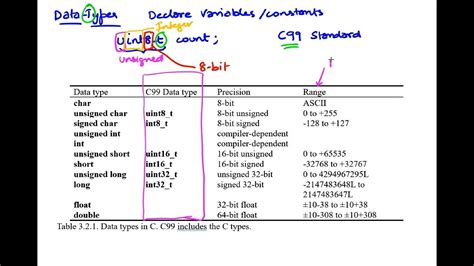 Data Types Declare variables/constants
Integer
uint8_t count; C99 Standard
unsigned
8-bit
Data type C99 Data type Precision Range
char 8-bit ASCII
unsigned char uint8_t 8-bit unsigned 0 to +255
signed char int8_t 8-bit signed -128 to +127
unsigned int compiler-dependent
int compiler-dependent
unsigned short uint16_t 16-bit unsigned 0 to +65535
short int16_t 16-bit signed -32768 to +32767
unsigned long uint32_t unsigned 32-bit 0 to 4294967295L
long int32_t signed 32-bit -2147483648L to
2147483647L
float 32-bit float ±10-38 to ±10+38
double 64-bit float ±10-308 to ±10+308
Table 3.2.1. Data types in C. C99 includes the C types.